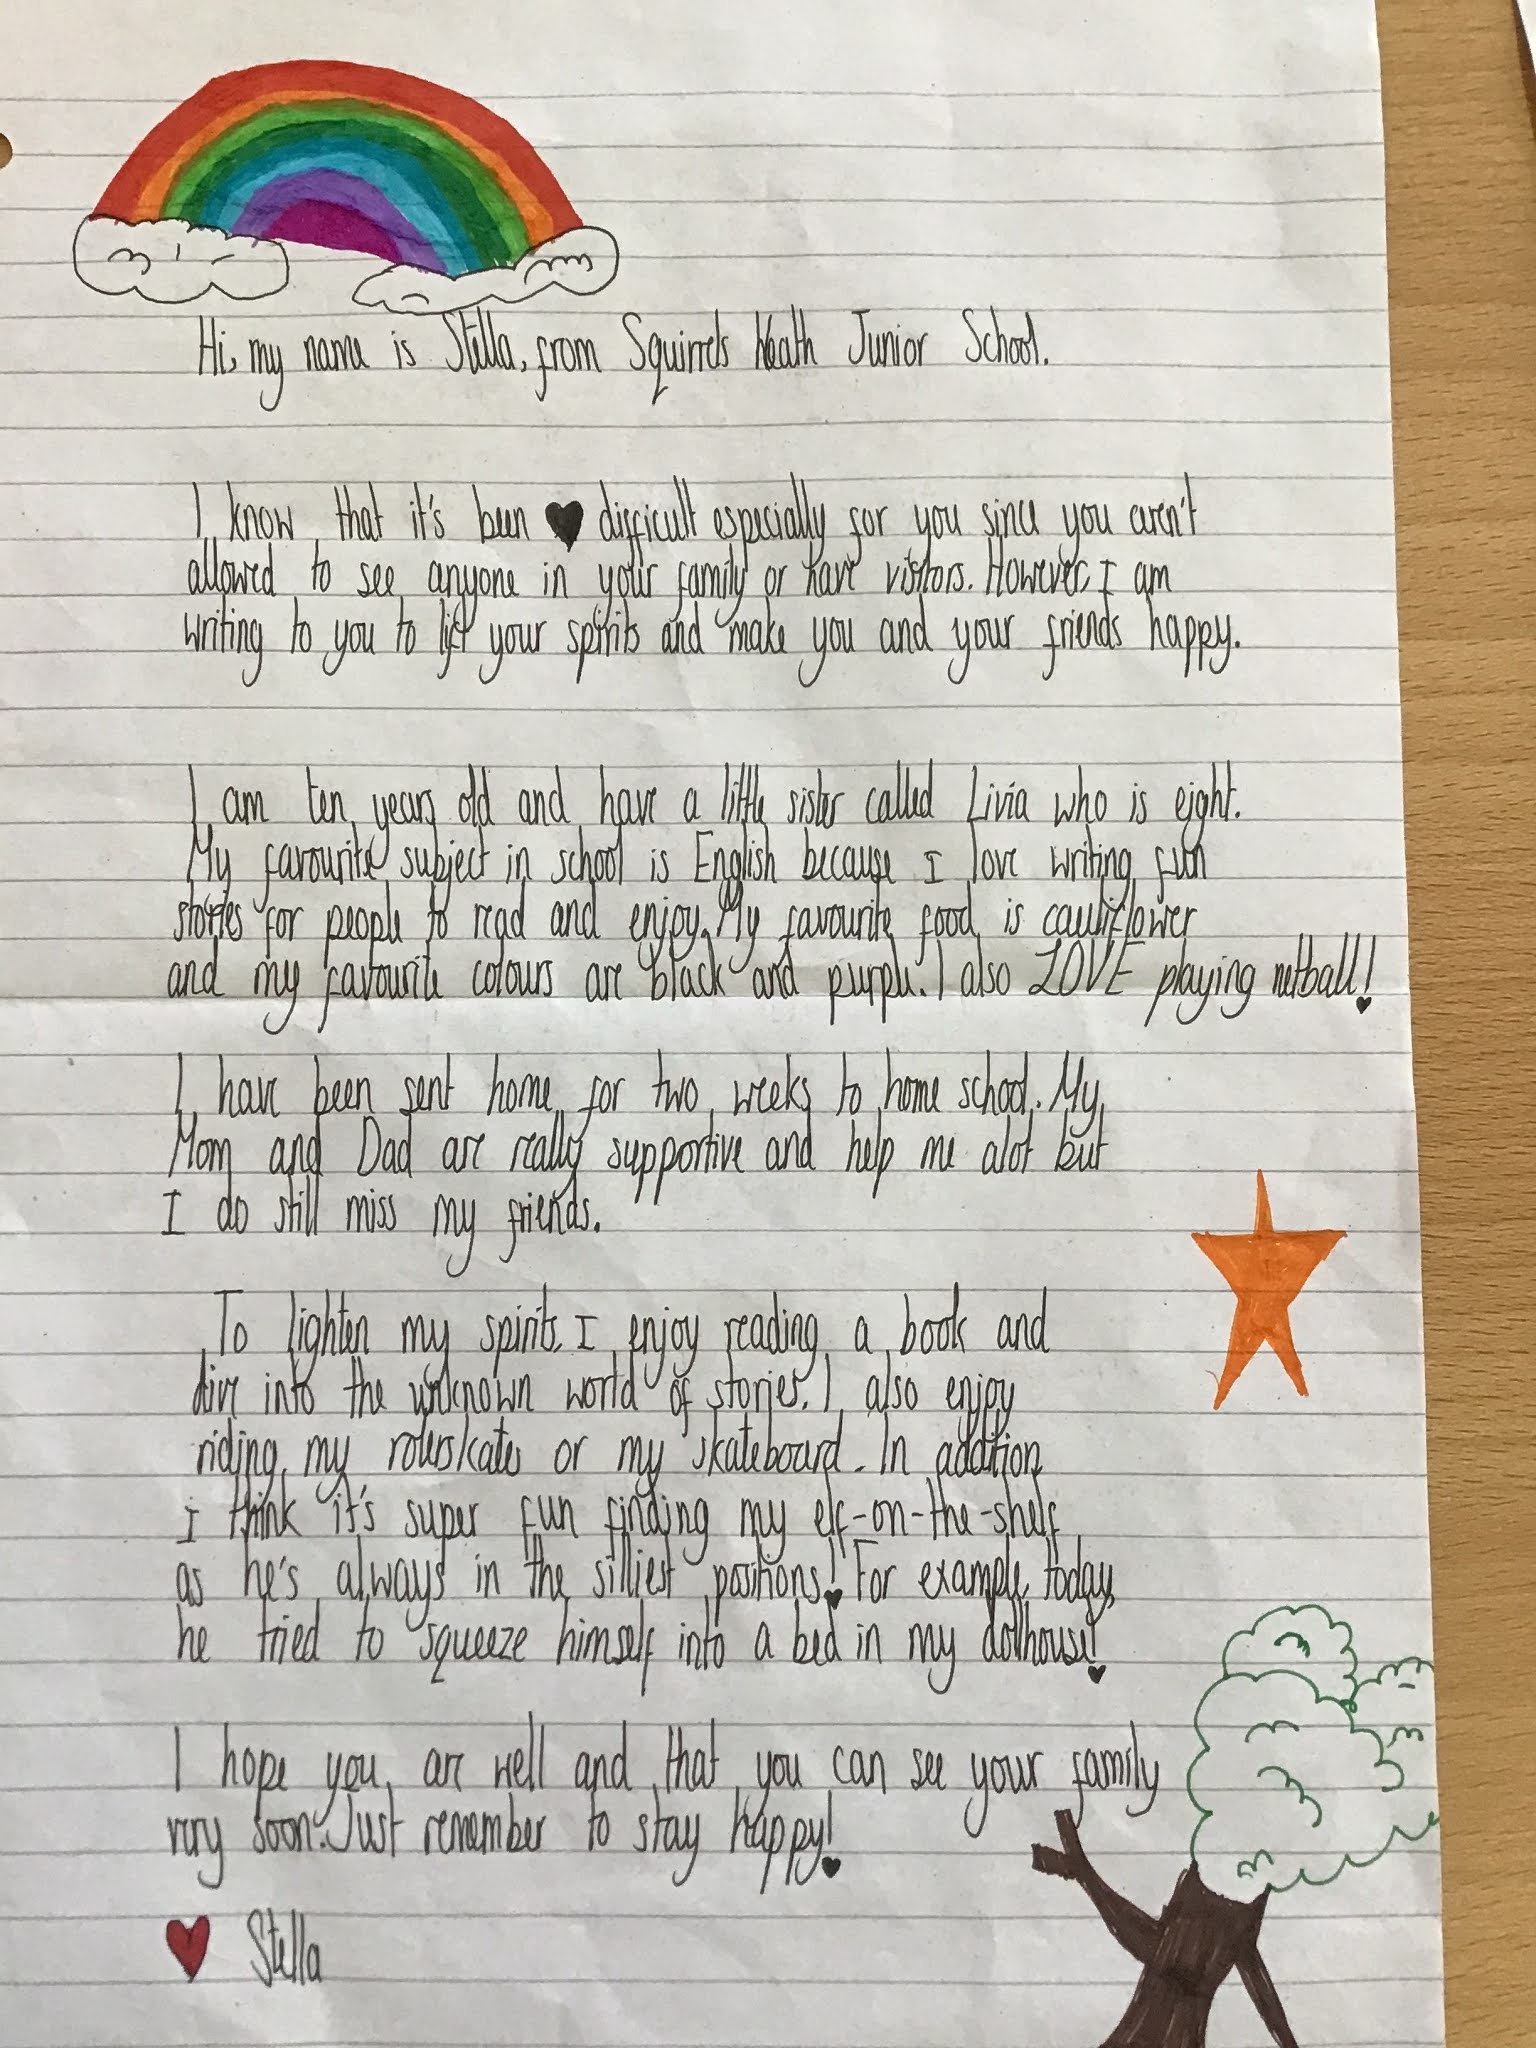 Hi, my name is Stella, from Squirrels Heath Junior School.
I know that it's been difficult especially for you since you aren't
allowed to see anyone in your family or have visitors. However, I am
writing to you to lift your spirits and make you and your friends happy.
I am ten years old and have a little sister called Livia who is eight.
My favourite subject in school is English because I love writing fun
stories for people to read and enjoy. My favourite food is cauliflower
and my favourite colours are black and purple. I also LOVE playing netball!
I have been sent home for two weeks to home school. My
Mom and Dad are really supportive and help me alot but
I do still miss my friends.
To lighten my spirits, I enjoy reading a book and
dive into the unknown world of stories. I also enjoy
riding my rolerskates or my skateboard. In addition
I think it's super fun finding my elf-on-the-shelf
as he's always in the silliest positions! For example, today,
he tried to squeeze himself into a bed in my dollhouse!
I hope you are well and that you can see your family
very soon. Just remember to stay happy!
Stella